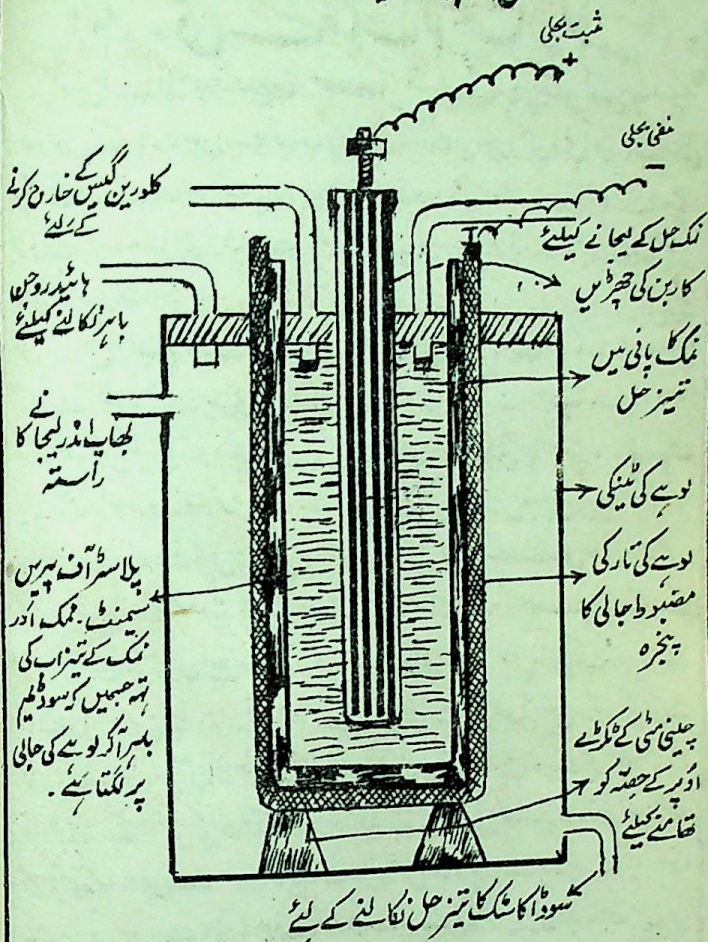 مثبت بجلی
+
منفی بجلی
−
کلورین گیس کے
خارج کرنے
کے لئے
ہائیڈروجن
باہر نکالنے کیلئے
بھاپ اندر لیجانے کا
راستہ
پلاسٹر آف پیرس
سیمنٹ۔ نمک اور
نمک کے تیزاب کی
تہہ جسمیں کہ سوڈیم
باہر آ کر لوہے کی جالی
پر لگتا ہے۔
نمک حل کے لیجانے کیلئے
کاربن کی چھڑیں
نمک کا پانی میں
تیز حل
لوہے کی ٹینکی
لوہے کی تار کی
مضبوط جالی کا
پنجرہ
چینی مٹی کے ٹکڑے
اوپر کے حصّہ کو
تھامنے کیلئے
سوڈا کاسٹک کا تیز حل نکالنے کے لئے